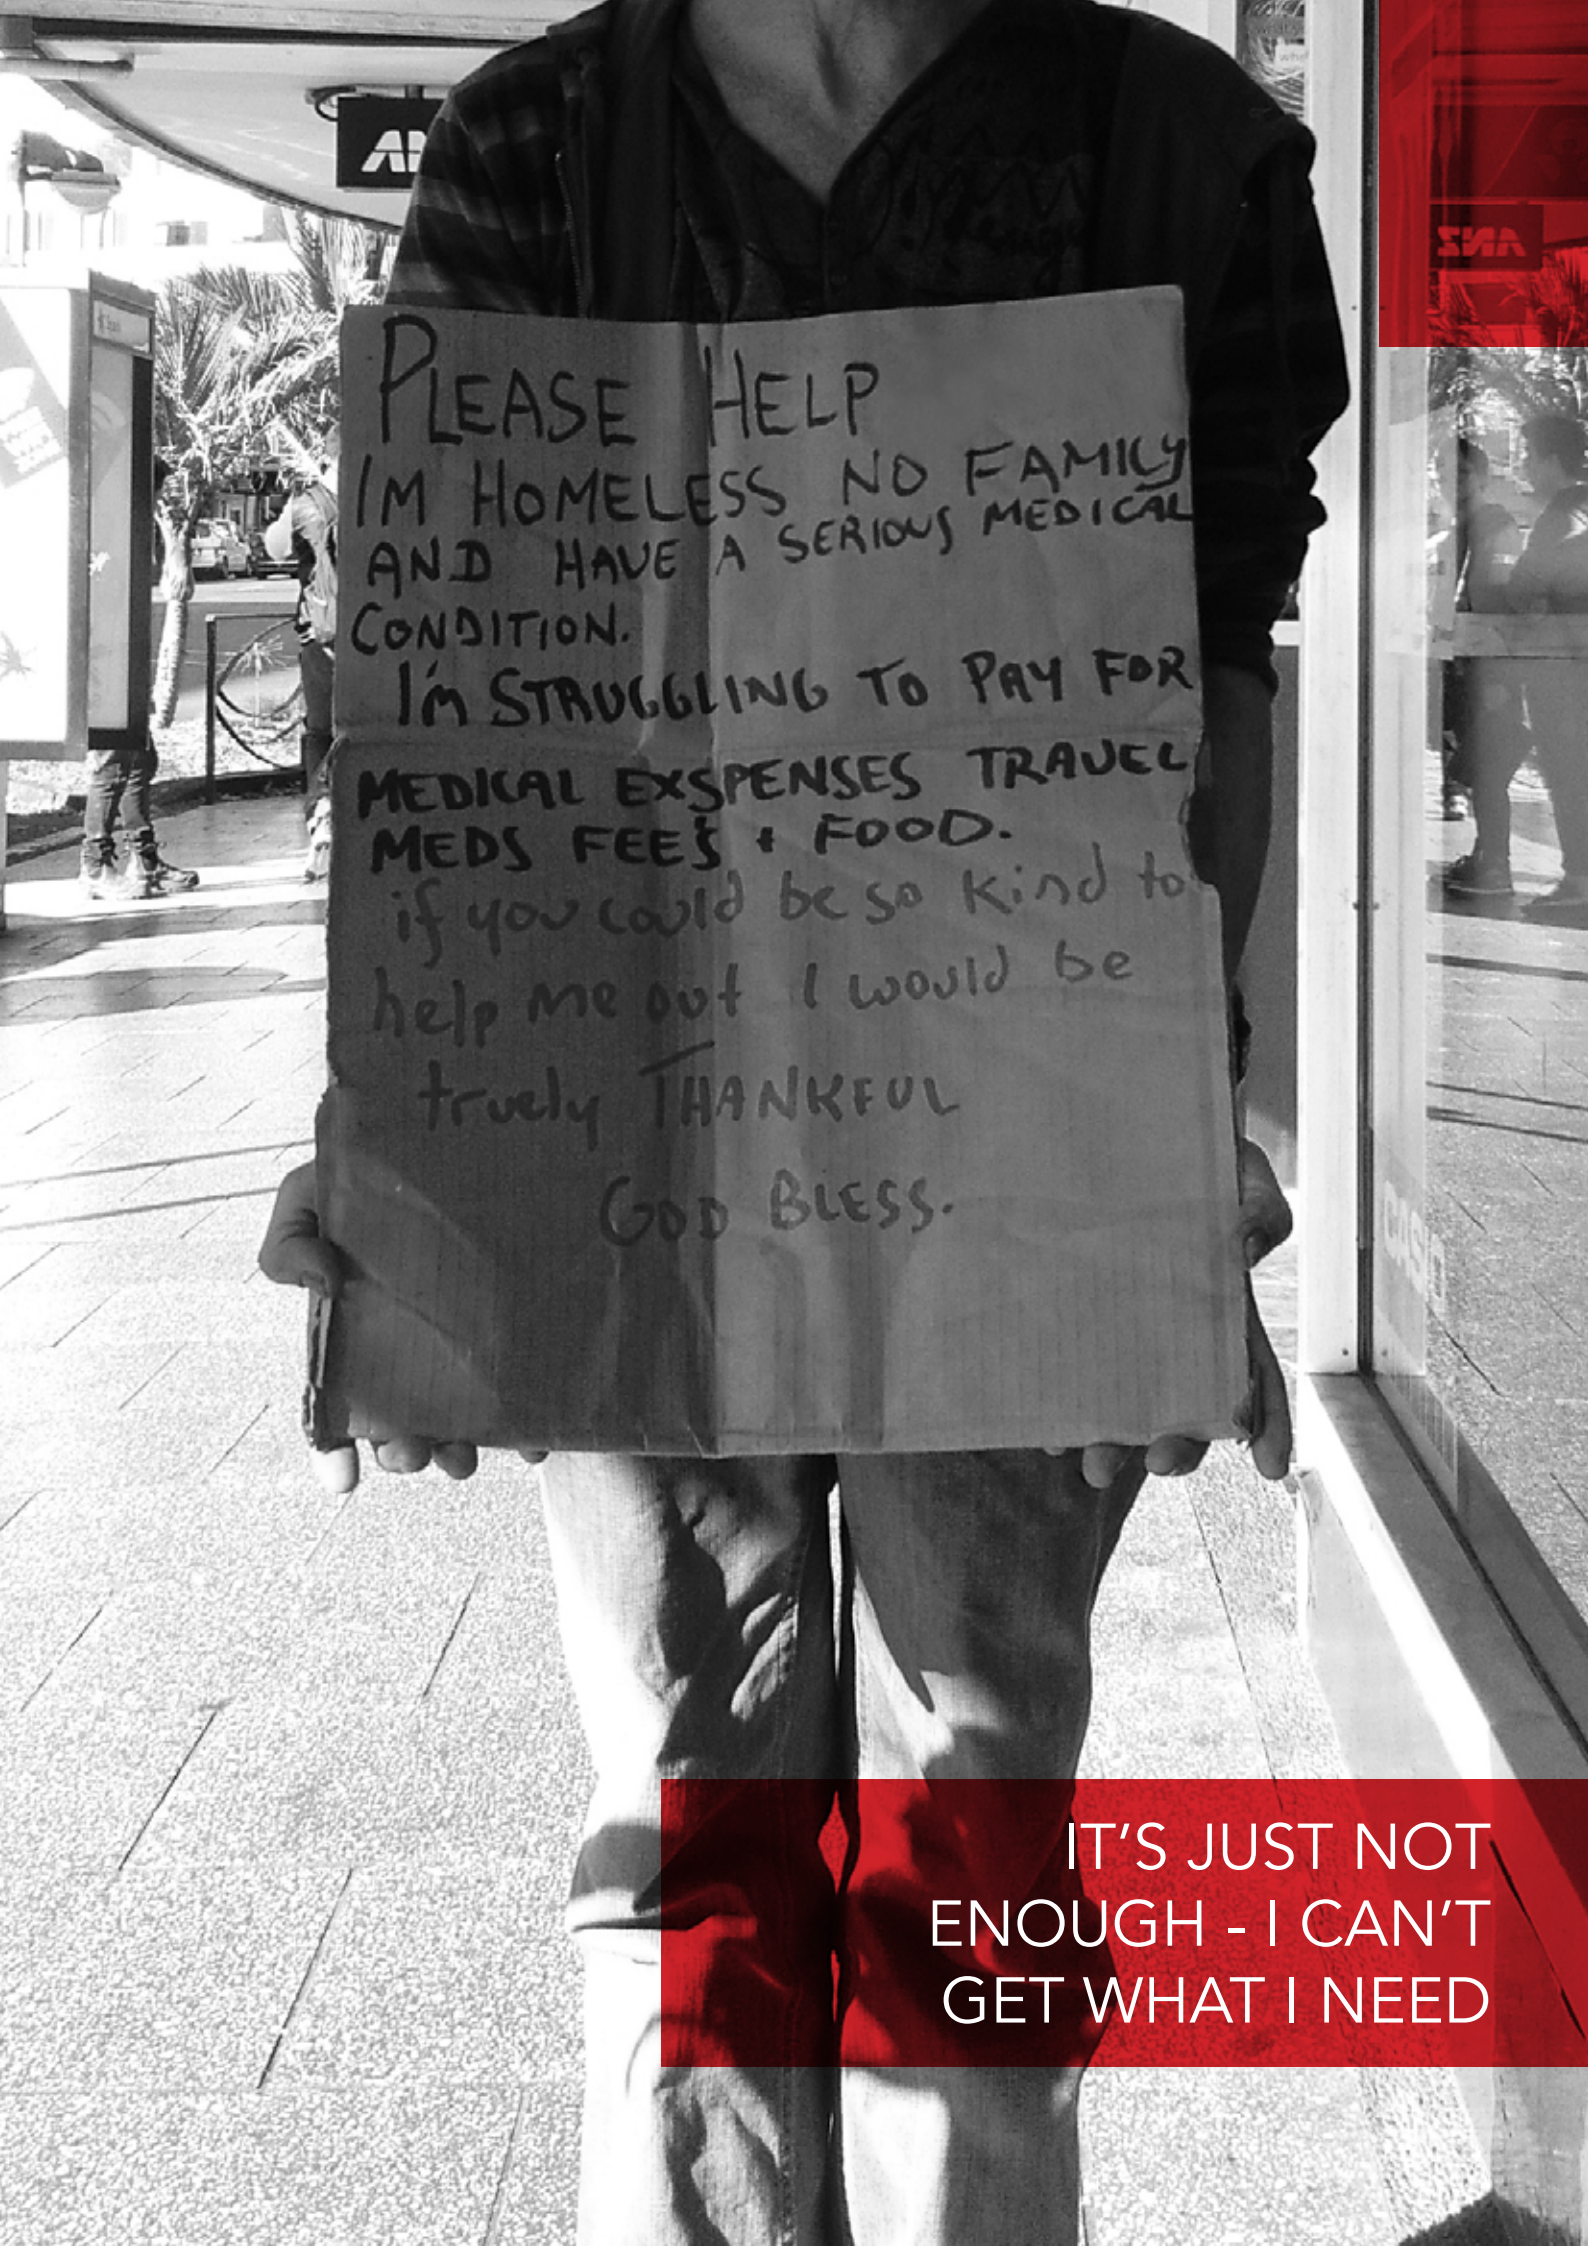 PLEASE HELP
IM HOMELESS NO FAMILY
AND HAVE A SERIOUS MEDICAL
CONDITION.
I'm STRUGGLING TO PAY FOR
MEDICAL EXSPENSES TRAVEL
MEDS FEES + FOOD.
if you could be so kind to
help me out I would be
truely THANKFUL
GOD BLESS.
ANZ
IT'S JUST NOT
ENOUGH - I CAN'T
GET WHAT I NEED